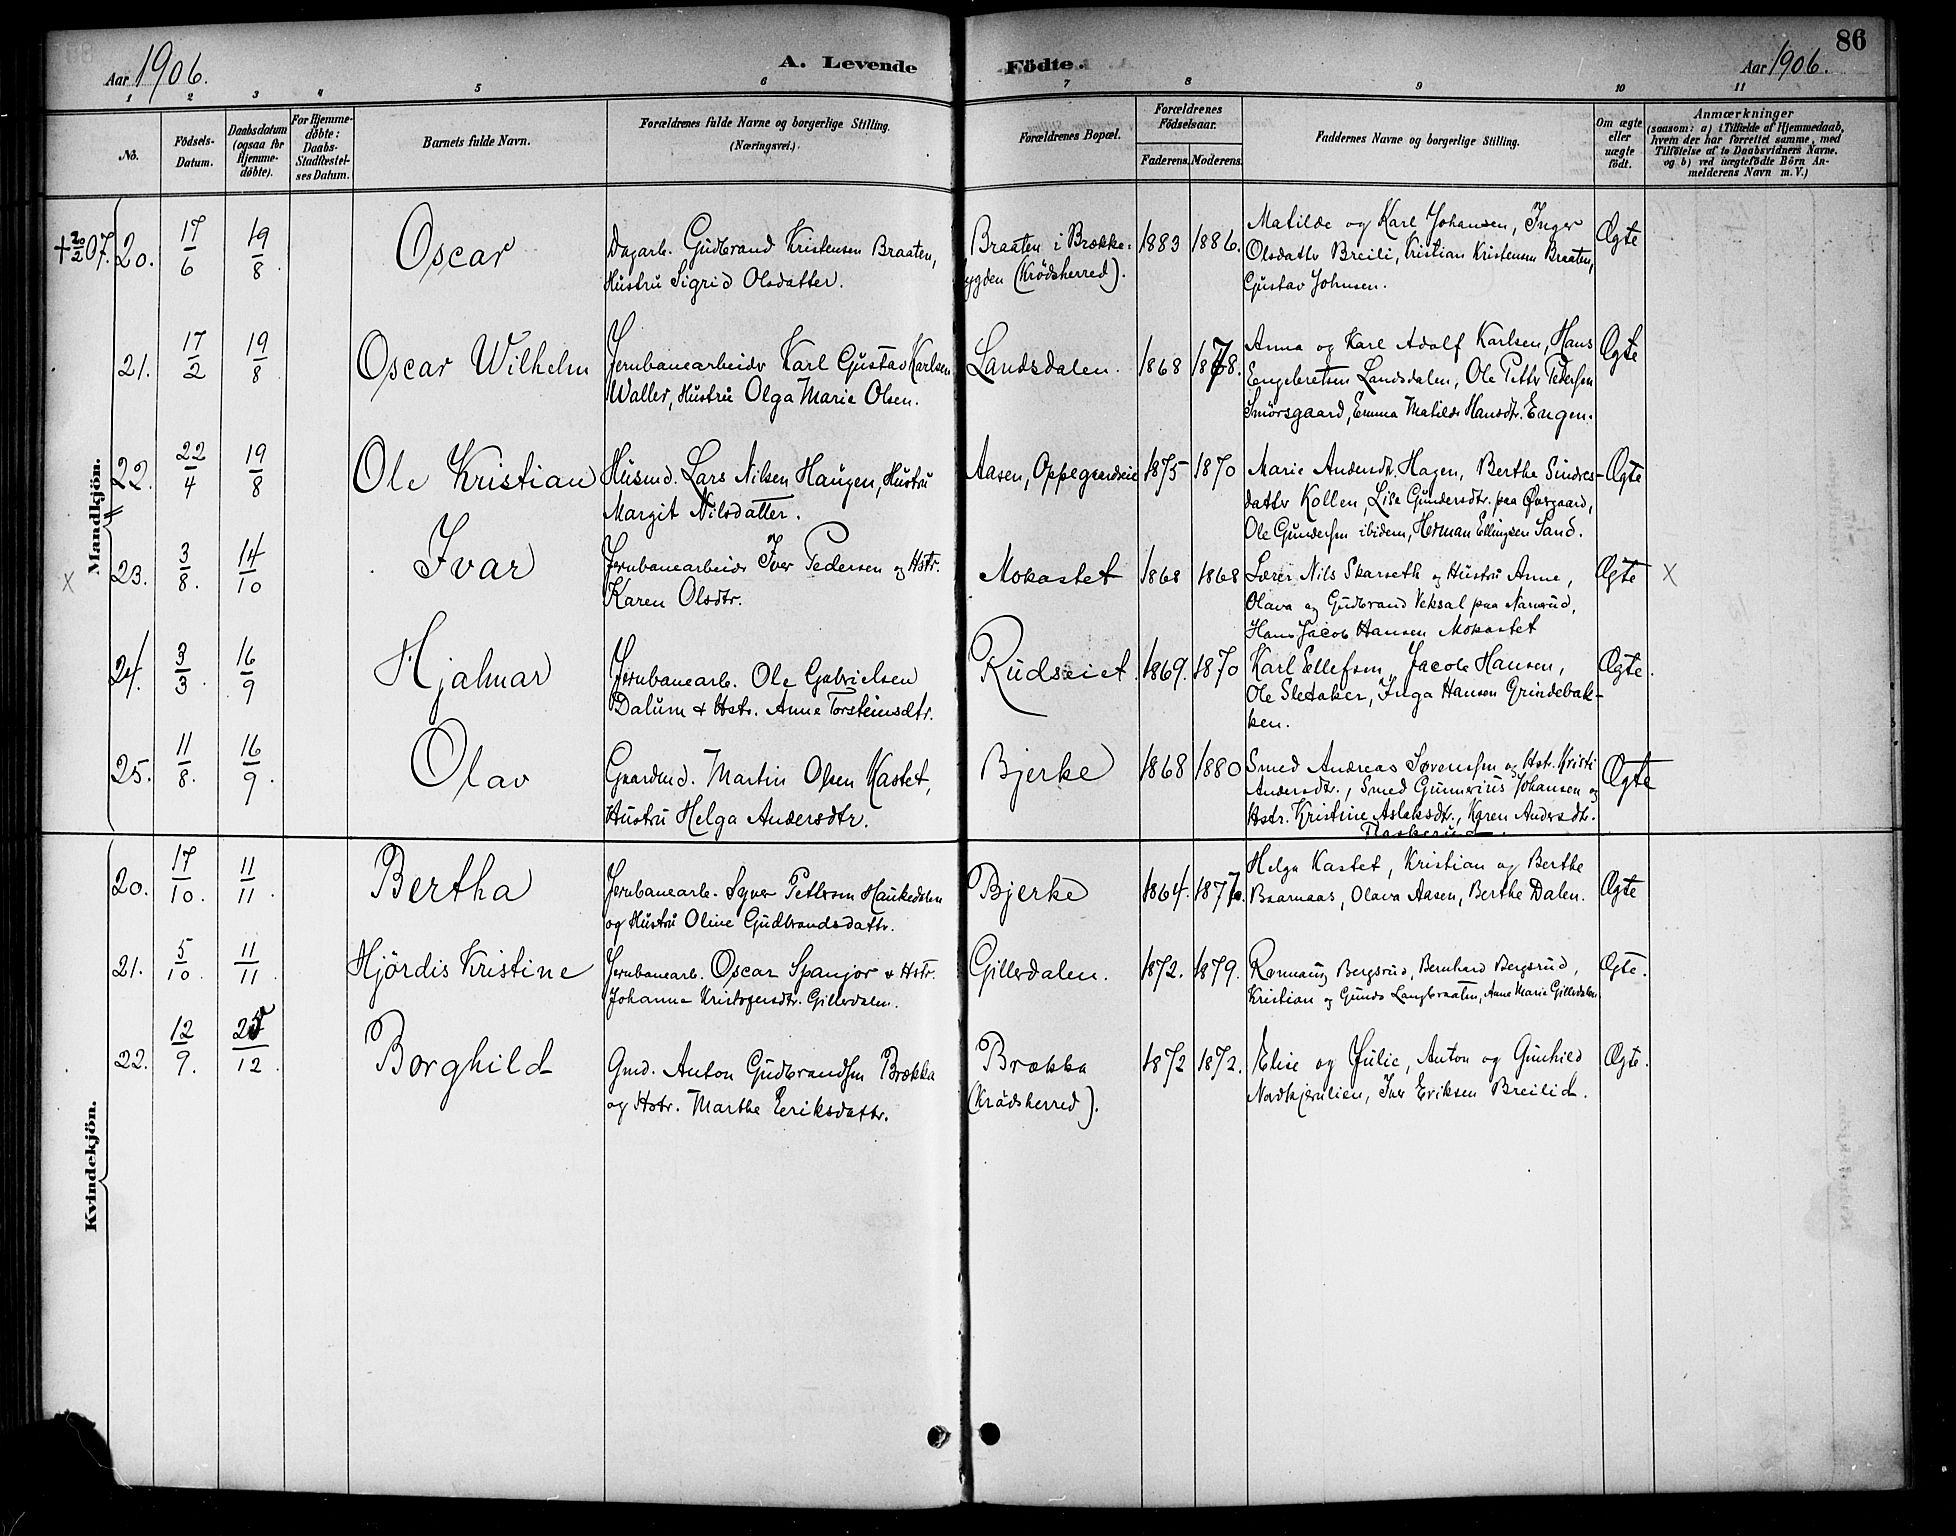 86
Aar 1906.
A. Levende Födte.
Aar 1906.
1 2 3 4 5 6 7 8 9 10 11
No.
Födsels-Datum.
Daabsdatum (ogsaa for Hjemmedøbte).
For Hjemmedøbte: Daabs-Stadfæstelses Datum.
Barnets fulde Navn.
Forældrenes fulde Navne og borgerlige Stilling.
(Næringsvei.)
Forældrenes Bopæl.
Forældrenes Födselsaar.
Faderens. Moderens.
Faddernes Navne og borgerlige Stilling.
Om ægte eller uægte født.
Anmærkninger
(saasom: a) i Tilfælde af Hjemmedaab,
hvem der har forrettet samme, med
Tilföielse af to Daabsvidners Navne.
og b) ved uægtefødte Börn An-
melderens Navn m. V.)
Mandkjön.
+ 20/2 07. 20. 17/6 19/8 Oscar
Dagarb. Gudbrand Kristensen Braaten,
Hustru Sigrid Olsdatter.
Braaten i Brække-
bygden (Krödsherred).
1883 1886.
Matilde og Karl Johansen, Inger
Olsdattr Breili, Kristian Kristensen Braaten,
Gustav Johnsen.
Ægte
21. 17/2 19/8 Oscar Wilhelm
Jernbanearbeidr Karl Gustav Karlsen
Waller, Hustru Olga Marie Olsen.
Landsdalen. 1868 1878.
Anna og Karl Adolf Karlsen, Hans
Engebretsen Landsdalen, Ole Pettr Pedersen
Smörsgaard, Emma Matilde Hansdtr. Engen.
Ægte
22. 22/4 19/8 Ole Kristian
Husmd. Lars Nilsen Haugen, Hustru
Margit Nilsdatter.
Aasen, Oppegaardseie 1875 1870
Marie Andersdtr. Hagen, Berthe Sindres-
dattr Kollen, Lise Gundersdtr. paa Øvrgaard,
Ole Gundersen ibidem, Herman Ellingsen Sand.
Ægte
x 23. 3/8. 14/10 Ivar
Jernbanearbeidr Iver Pedersen og Hstr.
Karen Olsdtr.
Mokastet 1868 1868
Lærer Nils Skarseth og Hustru Anne,
Olava og Gudbrand Veksal paa Narverud,
Hans Jacob Hansen Mokastet
Ægte x
24. 3/3. 16/9 Hjalmar
Jernbanearb. Ole Gabrielsen
Dalum & Hstr. Anne Torsteinsdtr.
Rudseiet. 1869. 1870
Karl Ellefsen, Jacob Hansen,
Ole Sletaker, Inga Hansen Grindebak-
ken.
Ægte.
25. 11/8. 16/9. Olav
Gaardmd. Martin Olsen Kastet,
Hustru Helga Andersdtr.
Bjerke 1868 1880
Smed Andreas Sørensen og Hstr. Kristi
Andersdtr., Smed Gunnerius Johansen og
Hstr. Kristine Aslaksdtr., Karen Andersdtr.
Ægte
Kvindekjön.
20. 17/10. 11/11. Bertha
Jernbanearb. Syver Pettersen Haukedalen
og Hustru Oline Gudbrandsdattr.
Bjerke 1864. 1877.
Helga Kastet, Kristian og Berthe
Baarnaas, Olava Aasen, Berthe Dalen.
Ægte
21. 5/10. 11/11. Hjördis Kristine
Jernbanearb. Oscar Spanjor & Hstr.
Johanne Kristofersdtr. Gillerdalen.
Gillerdalen. 1872. 1879.
Rannaug Bergsrud, Bernhard Bergsrud,
Kristian og Gunda Langbraaten, Anne Marie Gillerdalen
Ægte.
22. 12/9. 25/12. Borghild
Gmd. Anton Gudbrandsen Brækka
og Hstr. Marthe Eriksdattr.
Brækka
(Krödsherred).
1872 1872.
Elise og Julie, Anton og Gunhild
Nordbjerulien, Iver Eriksen Breilid.
Ægte.